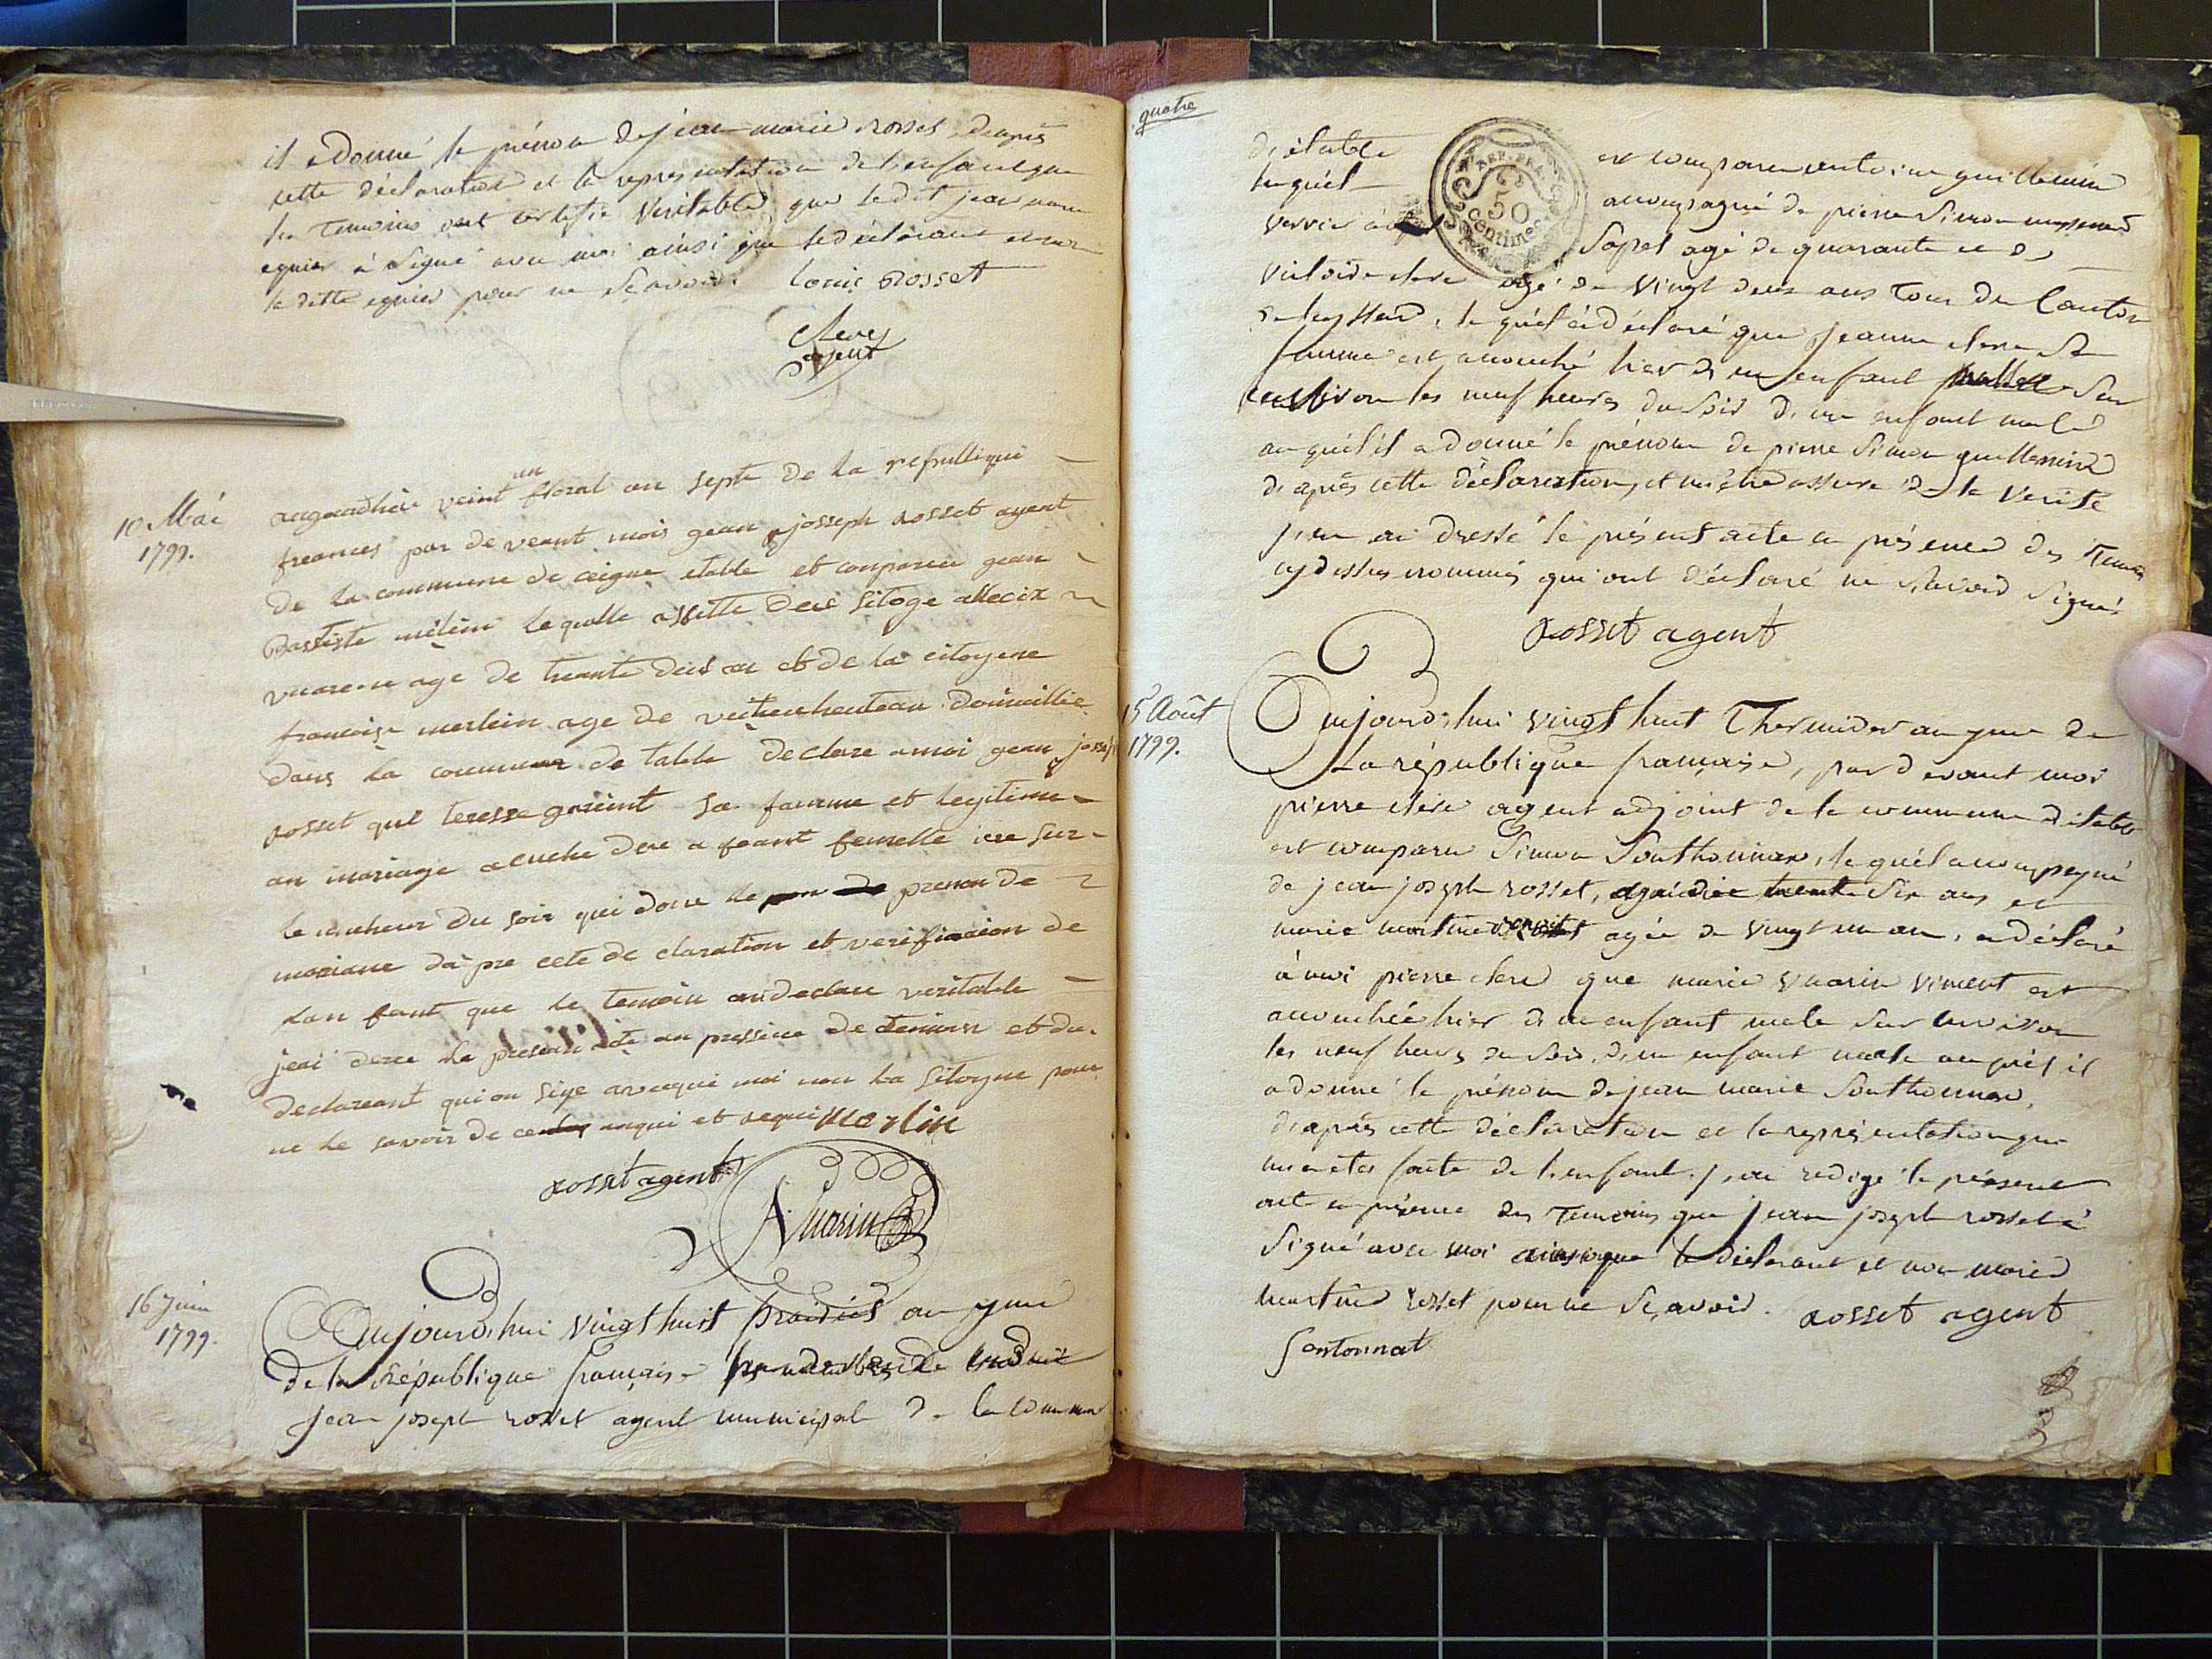 il a Donné le prénom de jean marie rosset, daprès
cette déclaration et la representation de l'enfant que
les Temoins ont certifié Veritable, que ledit jean marie
eguier à Signé avec moi ainsi que le déclarant et non
la ditte eguier pour ne Scavoir. Louis Rosset
Clerc
agent
10 Mai
1799.
augourdhui veint un floral an sept de la republiqui
freances par de veant mois gean josseph rosset agent
de la commune de ceigne etable et comparu gean
Battiste mêlein le quelle assitte deu sitoge allecix
vuarein age de treante deus an et de la citoyene
francoise merlein age de domicillie
dans la commune de table declare a moi gean joseph
rosset que teresse gorint sa famme et legitime
an mariage acuche dun a feant femelle ier sur
le du soir qui done le prenon de
mariane dà pre cete de claration et verification de
lan feant que le temoin on declare veritable
jeai dece le presen acte an pressince de temoin et du
declareant qui on sige avecque moi non la sitoyne pour
ne le savoir de ce anqui et requi merlin
rosset agent
A vuarin
16 Juin
1799.
Aujourd'hui Vingt huit prairial an 7me
de la République française
jean joseph rosset agent municipal de la commune
quatre
d'étable est comparu antoine guillermin
lequel accompagné de pierre Simon
vervier âgé Sapet agé de quarante et
victoire clerc agé de Vingt deux ans Tous du Canton
, lequel a déclaré que jeanne clerc sa
femme est accouché hier d'un enfant sur
environ les neuf heures du Soir d'un enfant male
auquel il a donné le prénom de pierre Simon guillermin
d'après cette déclaration, et m'être assuré de la Verité
j'en ai dressé le présent acte en présence des Temoins
cy dessus nommés qui ont déclaré ne Scavoir Signés
rosset agent
REP. FRA.
50
Centimes
15 Août
1799.
Aujourd'hui vingt huit Thermidor an 7me de
La république française, pardevant moi
pierre clerc agent adjoint de la commune d'étable
est comparu Simon Southonnax, lequel accompagné
de jean joseph rosset, trente Six ans et
marie martine rosset agée de vingt un an, a déclaré
à moi pierre clerc que marie vuarin Viment est
accouchée hier d'un enfant male sur environ
les neuf heures du Soir, d'un enfant male auquel il
a donné le prénom de jean marie Southonnax,
d'après cette déclaration et la représentation que
m'en a été faite de l'enfant. j'en ai redigé le présent
acte en présence des Temoins que jean joseph rosset à
Signé avec moi ainsi que le déclarant et non marie
martine rosset pour ne Scavoir. rosset agent
Sontonnat